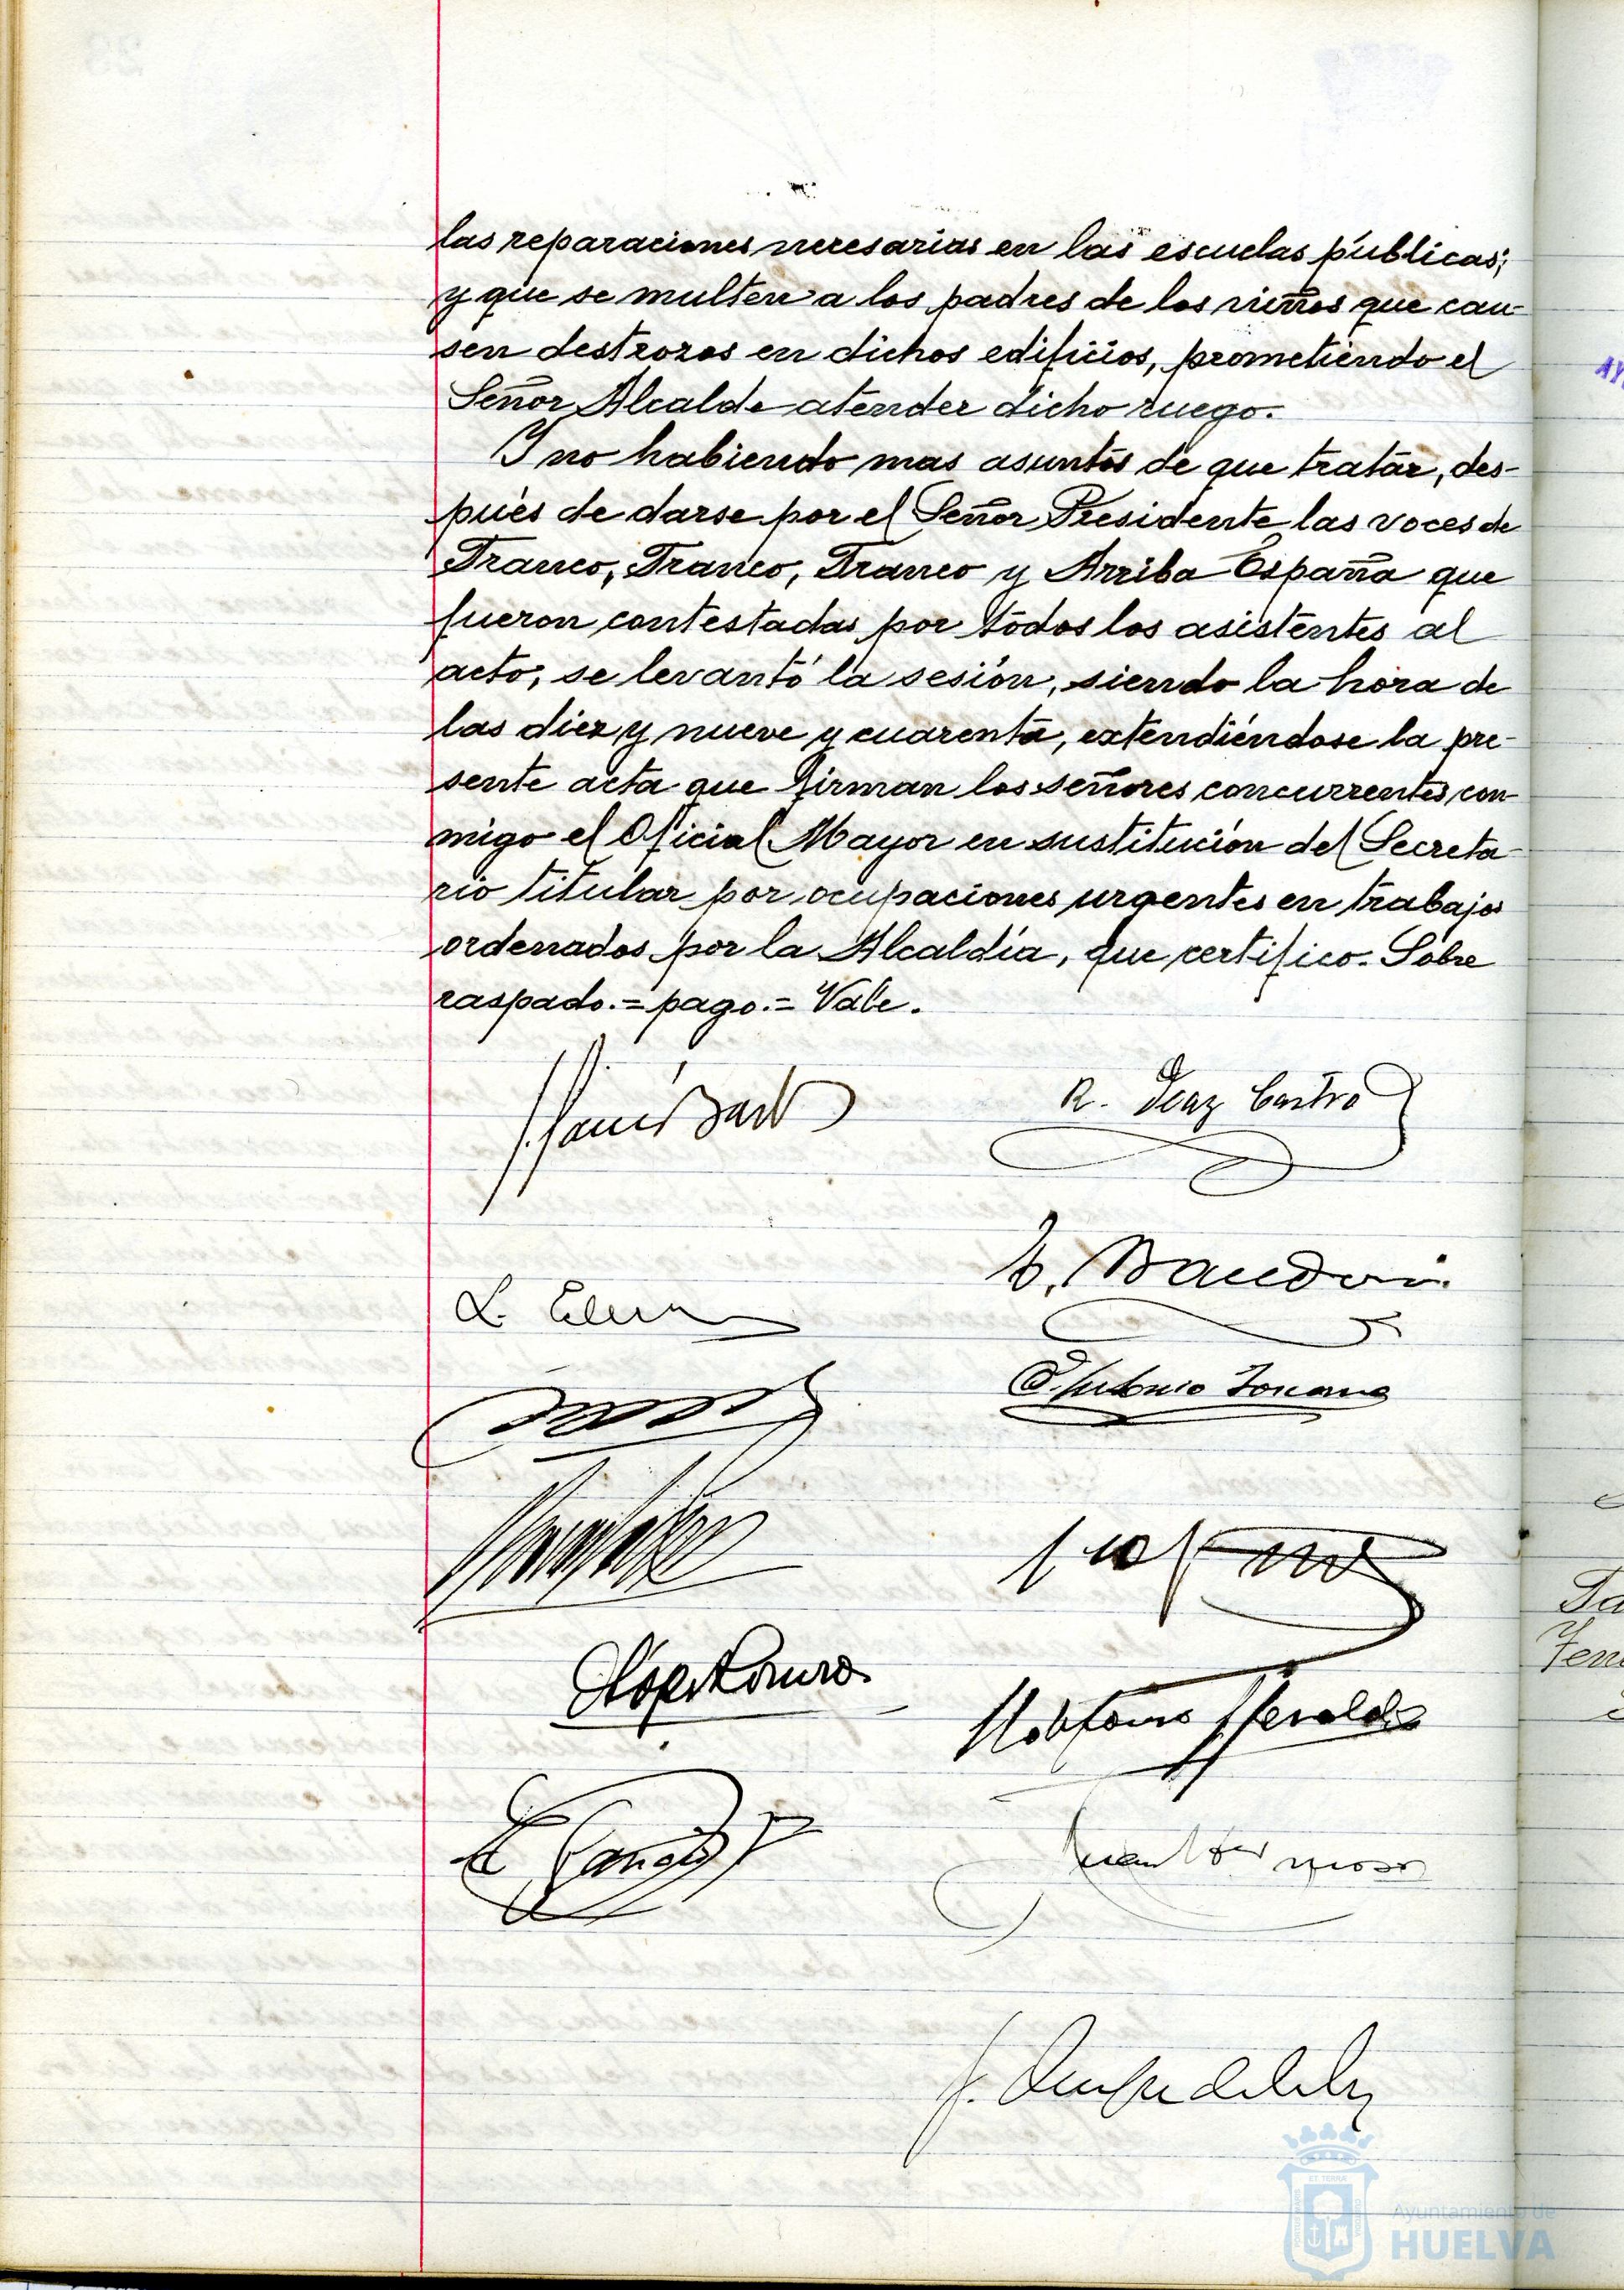 las reparaciones necesarias en las escuelas públicas;
y que se multen a los padres de los niños que cau-
sen destrozos en dichos edificios, prometiendo el
Señor Alcalde atender dicho ruego.
Y no habiendo mas asuntos de que tratar, des-
pués de darse por el Señor Presidente las voces de
Franco, Franco, Franco y Arriba España que
fueron contestadas por todos los asistentes al
acto, se levantó la sesión, siendo la hora de
las diez y nueve y cuarenta, extendiéndose la pre-
sente acta que firman los señores concurrentes con-
migo el Oficial Mayor en sustitución del Secreta-
rio titular por ocupaciones urgentes en trabajos
ordenados por la Alcaldía, que certifico. Sobre
raspado.= pago.= Vale.
R. Diaz Castro
ET TERRA
Ayuntamiento de
HUELVA